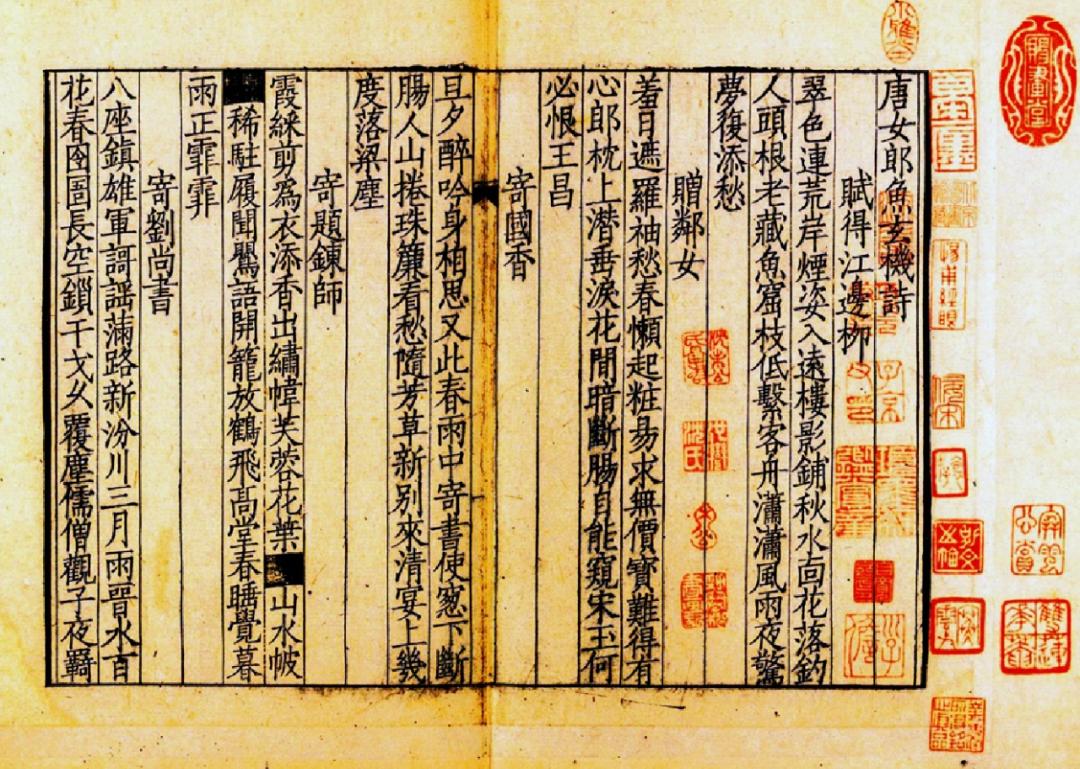 唐女郎魚玄機詩
賦得江邊柳
翠色連荒岸煙姿入遠樓影鋪秋水面花落釣
人頭根老藏魚窟枝低繫客舟瀟瀟風雨夜驚
夢復添愁
贈鄰女
羞日遮羅袖愁春懶起粧易求無價寳難得有
心郎枕上潛垂淚花間暗斷腸自能窺宋玉何
必恨王昌
寄國香
旦夕醉吟身相思又此春雨中寄書使窻下斷
腸人山捲珠簾看愁隨芳草新别來清宴上幾
度落梁塵
寄題鍊師
霞綵剪爲衣添香出繡幃芙蓉花葉山水帔
稀駐履聞鸎語開籠放鶴飛高堂春睡覺暮
雨正霏霏
寄劉尚書
八座鎮雄軍謌謡滿路新汾川三月雨晉水百
花春囹圄長空鏁干戈乆覆塵儒僧觀子夜羇